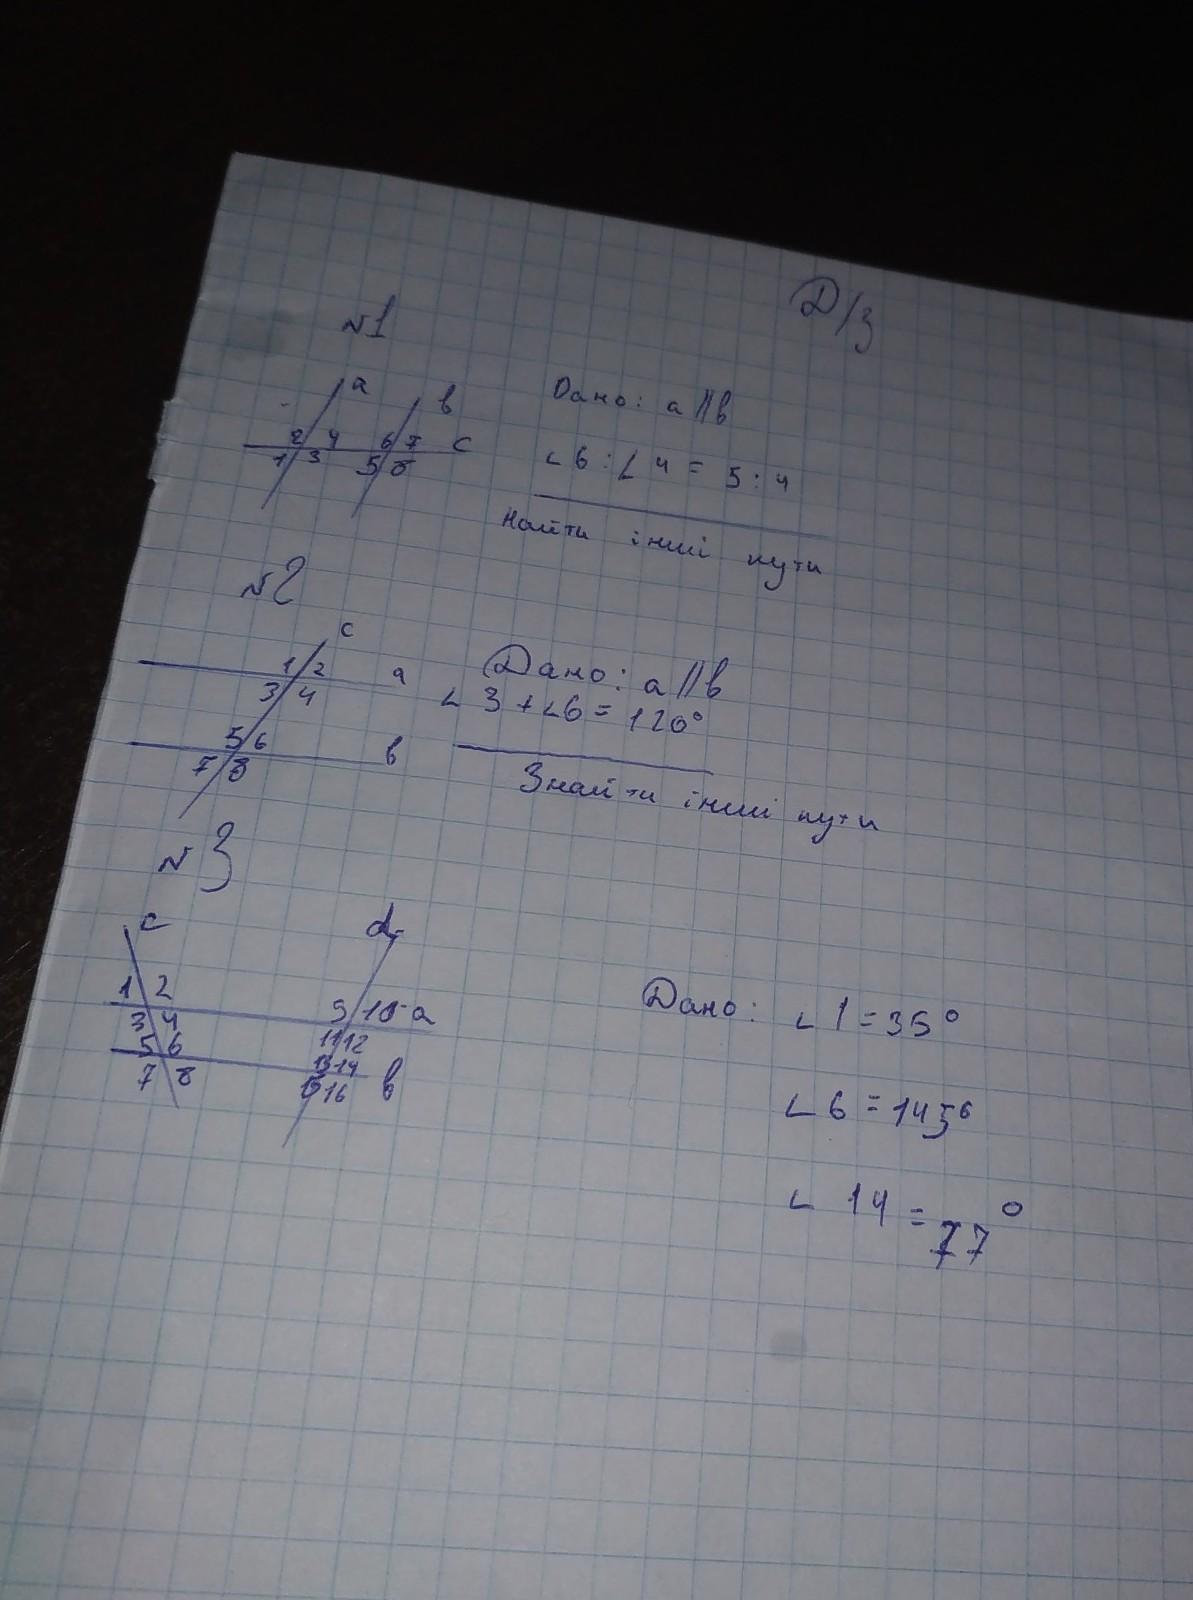 Д/з
№1
a
b
2 4 6 7 c
1 3 5 8
Дано: a||b
∠6:∠4 = 5:4
Найти інші кути
№2
c
1 2 a
3 4
5 6
7 8 b
Дано: a||b
∠3+∠6=120°
Знайти інші кути
№3
c d
1 2 9 10 a
3 4 11 12
5 6 13 14
7 8 15 16 b
Дано: ∠1=35°
∠6=145°
∠14=77°